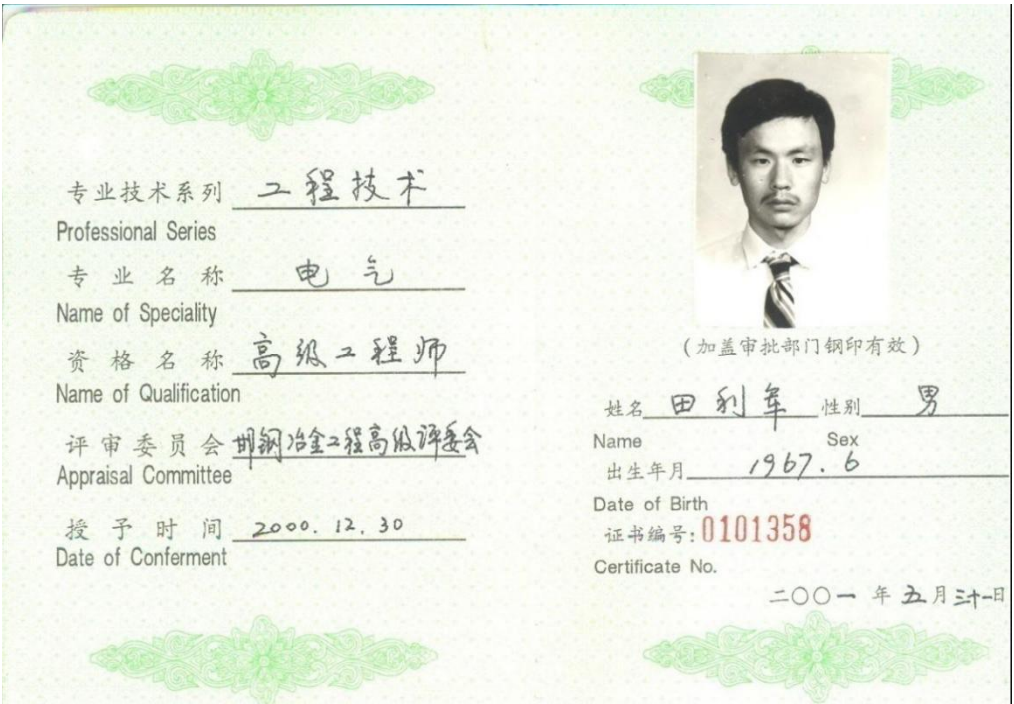 专业技术系列 工程技术
Professional Series
专业名称 电气
Name of Speciality
资格名称 高级工程师
Name of Qualification
评审委员会 邯钢冶金工程高级评委会
Appraisal Committee
授予时间 2000.12.30
Date of Conferment
(加盖审批部门钢印有效)
姓名 田利军 性别 男
Name Sex
出生年月 1967.6
Date of Birth
证书编号:0101358
Certificate No.
二〇〇一年五月三十一日